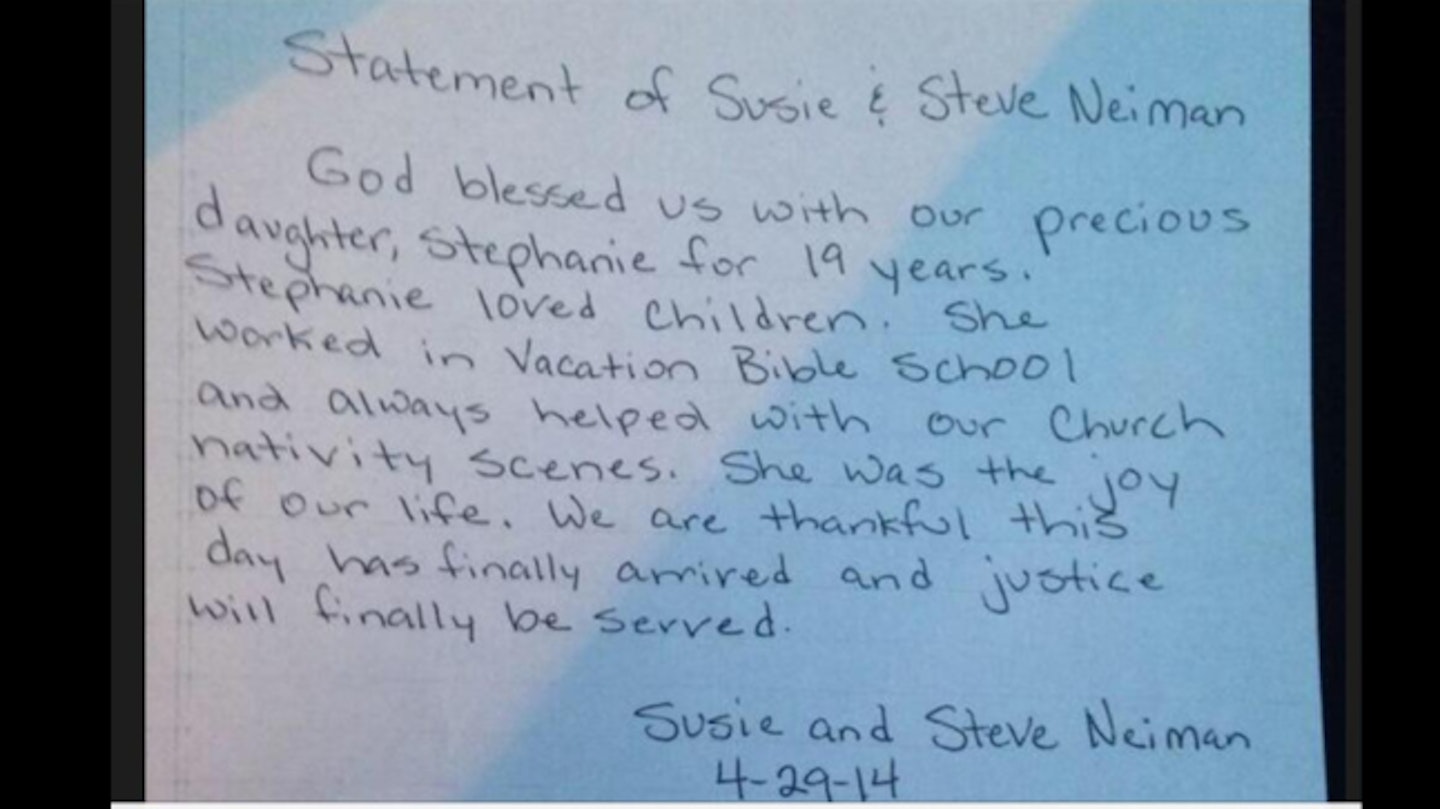 Statement of Susie & Steve Neiman
God blessed us with our precious
daughter, Stephanie for 19 years.
Stephanie loved children. She
worked in Vacation Bible School
and always helped with our Church
nativity scenes. She was the joy
of our life. We are thankful this
day has finally arrived and justice
will finally be served.
Susie and Steve Neiman
4-29-14